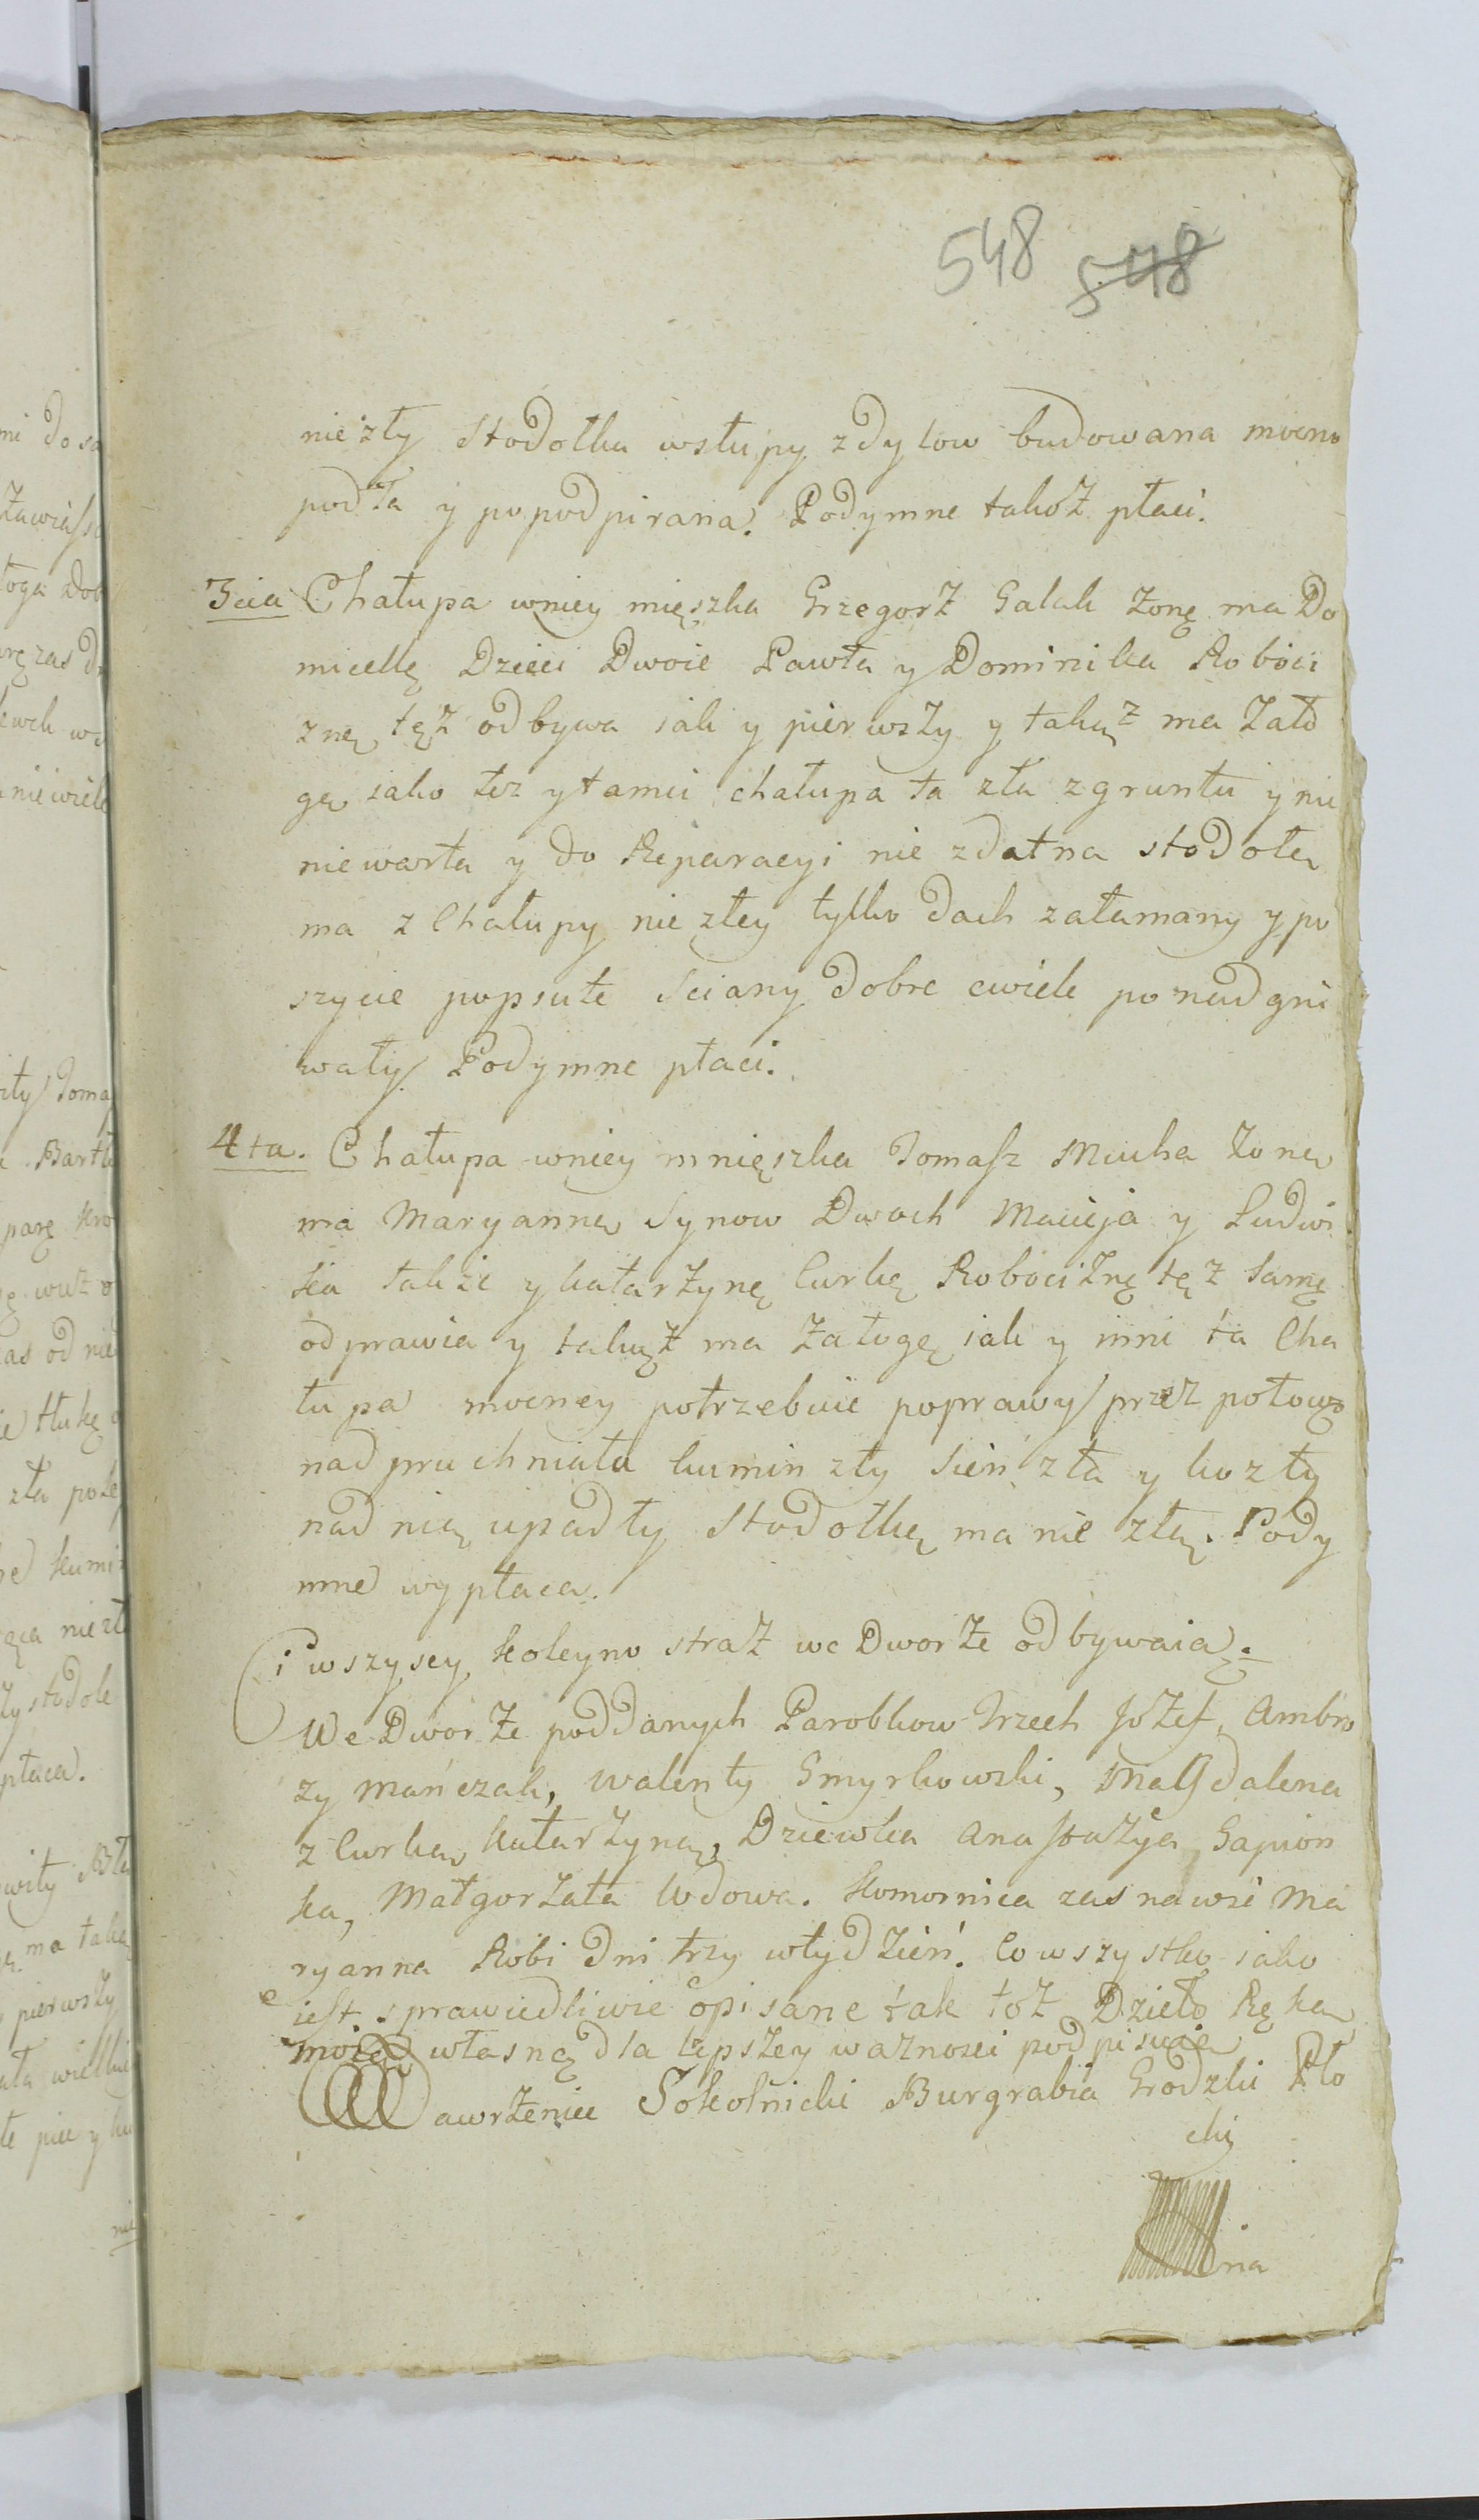 548 548
niezły Stodołka wsłupy zdylow budowana mocno
podła y popodpirana. Podymne takoż płaci.
3cia Chałupa wniey mięszka Grzegorż Galak Żonę ma Do
micellę Dzieci Dwoie Pawła y Dominika Roboci
znę tęż odbywa iak y pierwszy y takąż ma Zało
gę iako też y tamci chałupa ta zła z gruntu y nic
nie warta y do Reparacyi nie zdatna stodołę
ma z Chałupy nie złey tylko dach załamany y po
szycie popsute Sciany dobre cwiele ponadgni
wały. Podymne płaci.
4ta. Chałupa wniey mnięszka Tomasz Mucha Żonę
ma Maryannę Synow Dwoch Macieja y Ludwi
ka także y katarżynę Curkę Robociznę tęż samę
odprawia y takąż ma Załogę iak y inni ta Cha
łupa mocney potrzebuie poprawy przez połowę
nadpruchniała kumin zły Sień zła y kozły
nad nią upadły Stodołkę ma nie złą. Pody
mne wypłaca.
Ci wszyscy koleyno straż we Dworże odbywaią.
We Dworże poddanych Parobkow Trzech Jożef, Ambro
zy Mańczak, Walenty Smyrkowski, Magdalena
z Curką Katarżyną, Dziewka Anastażya Gapion
ka, Małgorżata Wdowa. Komornica zas na wsi Ma
ryanna Robi dni trzy w tydzień. Co wszystko iako
iest sprawiedliwie opisane tak toż Dzieło Ręką
moią własną dla lepszey waznosci podpisuię
Wawrżeniec Sokolnicki Burgrabia Grodzki Pło
cki